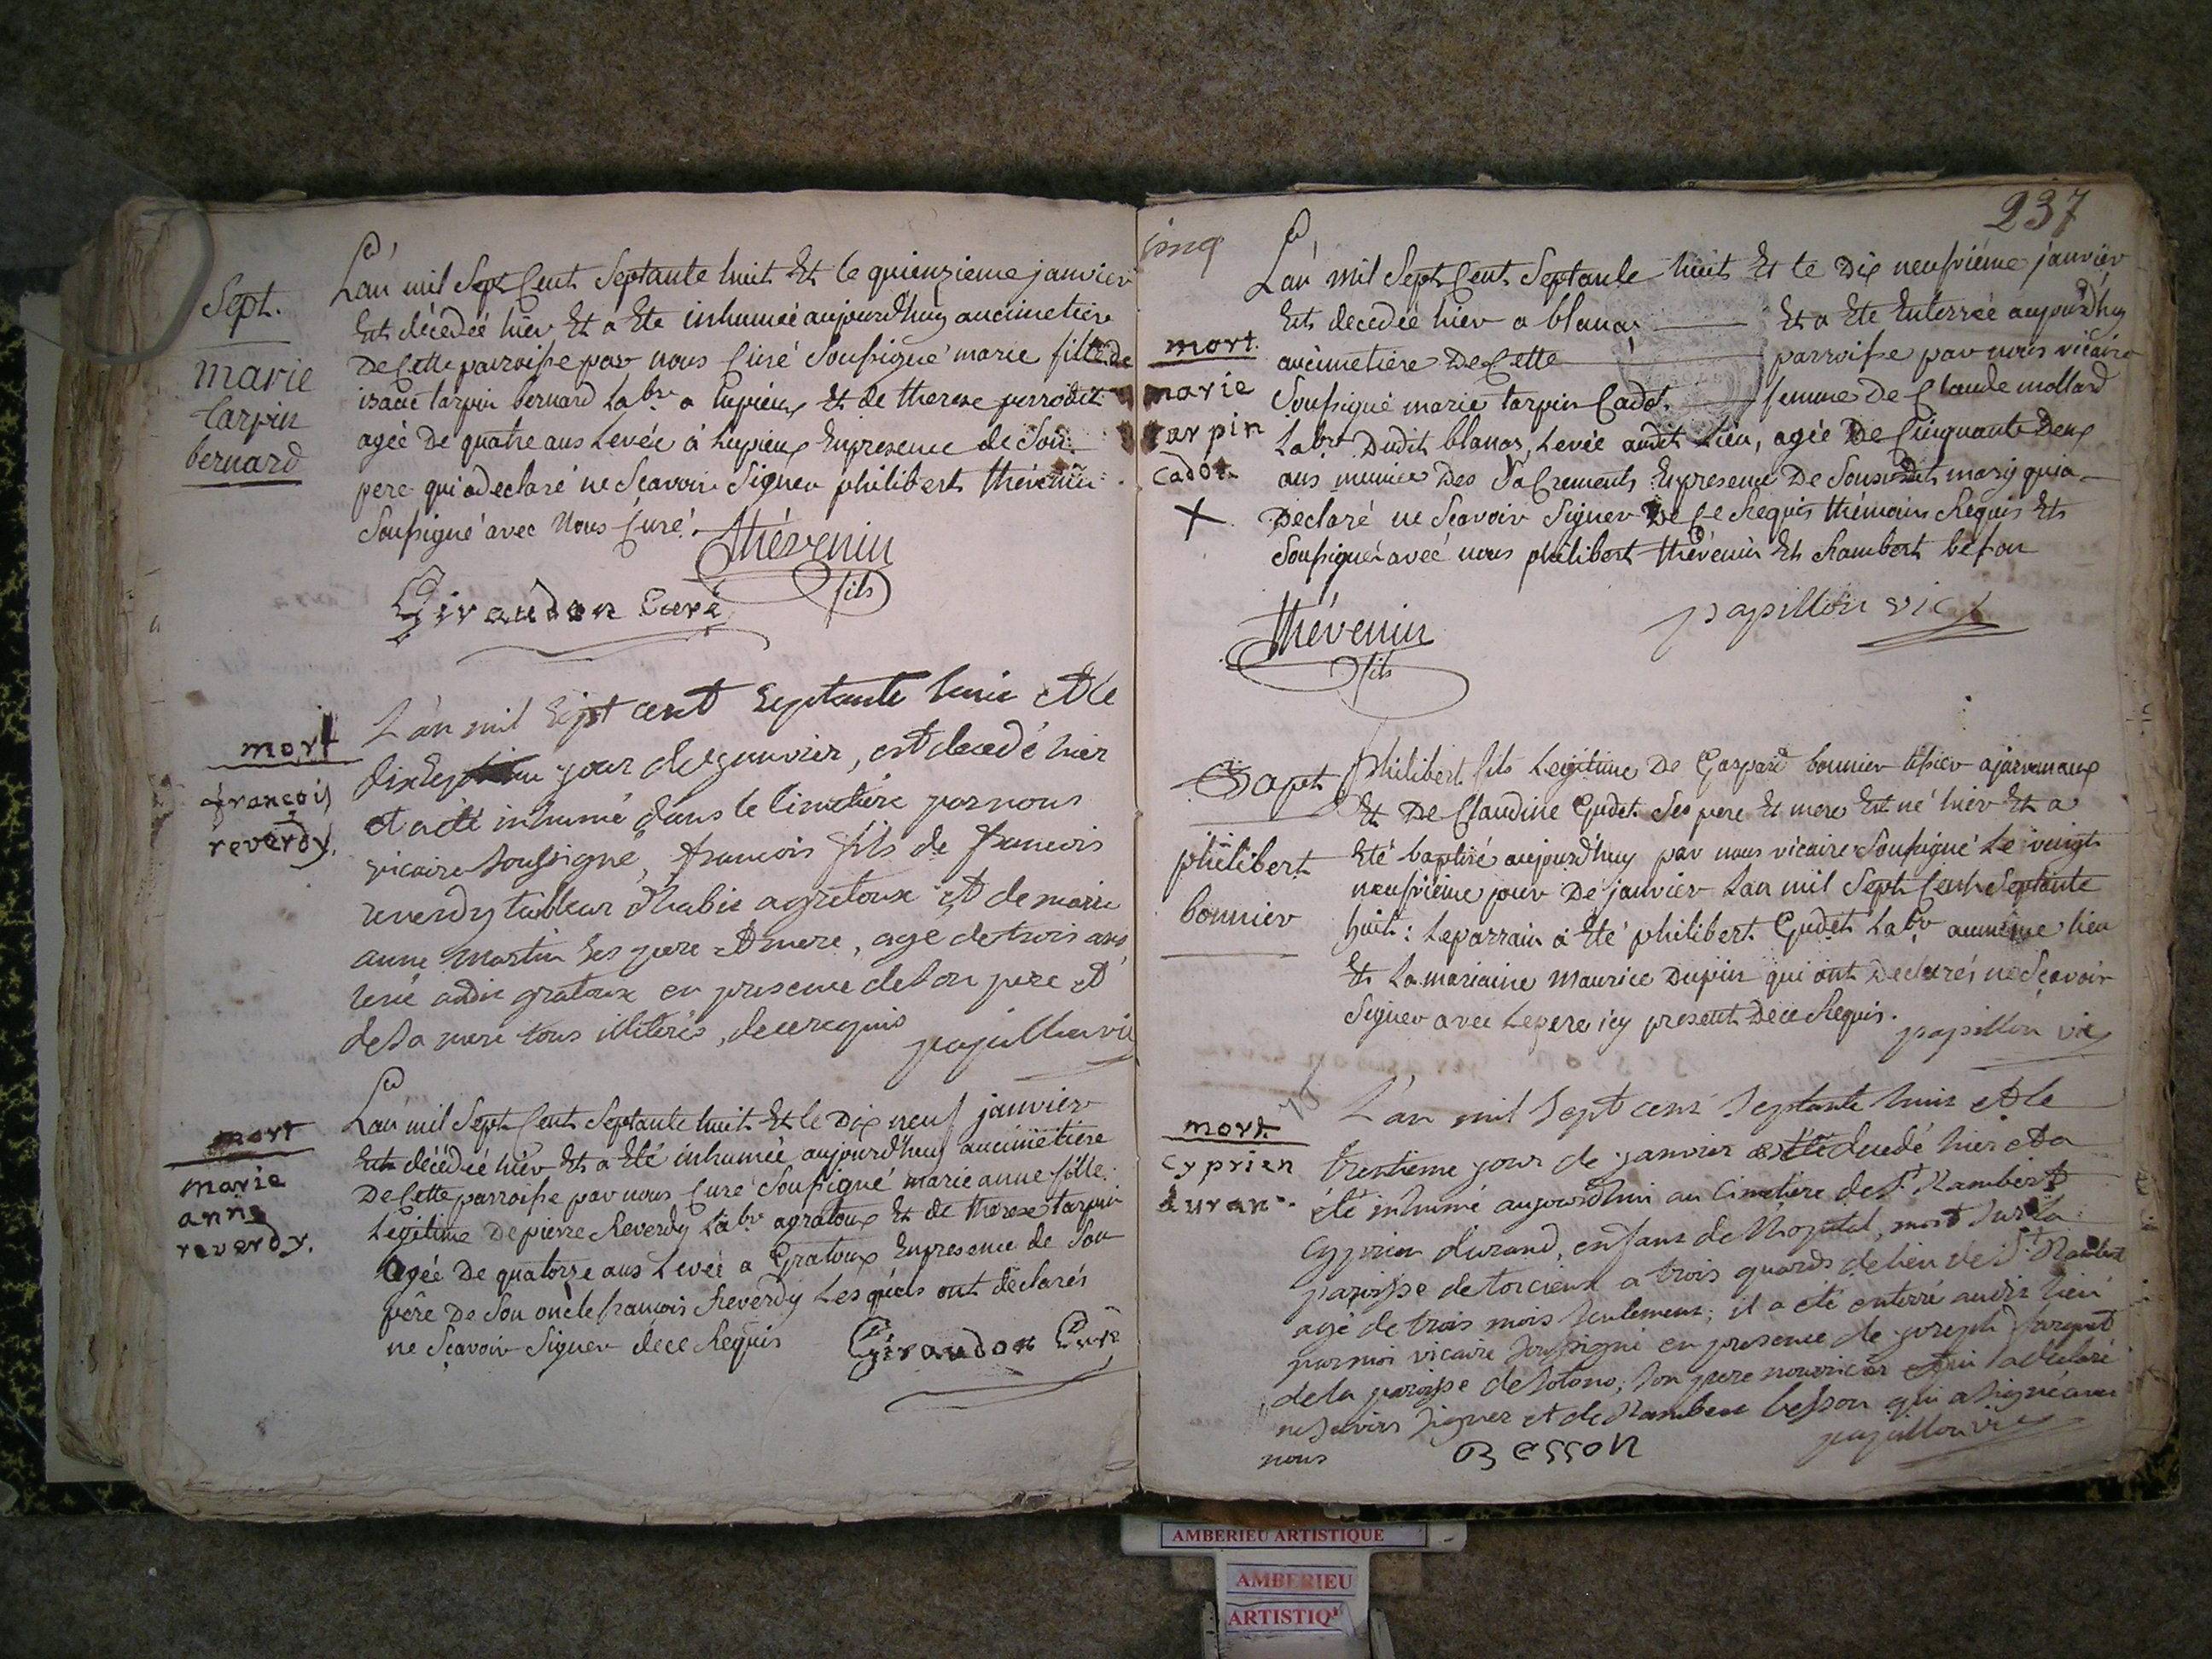 Sept.
marie
tarpin
bernard
L'an mil Sept Cent Septante huit Et le quienzieme janvier
Est décédeé hier Et a Ete inhumeé aujourd'huy aucimetiere
De Cette parroisse par nous Curé Soussigné marie fille de
isaac tarpin bernard Labr a Lupieux Et de therese perrodet
agée De quatre ans Levée à Lupieux Enpresence de Son
pere qui a declaré ne Scavoir Signer philibert thévenin
Soussigné avec Nous Curé.
Thévenin
fils
Giraudon Curé
mort
françois
reverdy.
L'an mil Sept cent Septante huit et le
dixseptieme jour de janvier, est decedé hier
et a été inhumé dans le Cimetiere par nous
vicaire soussigné, francois fils de francois
reverdy tailleur d'habit a gratoux et de marie
anne martin ses pere et mere, agé de trois ans
levé audit gratoux en presence de son pere et
de sa mere tous illiterés, de ce requis papillon vic
mort
marie
anne
reverdy.
L'an mil Sept Cent Septante huit Et le Dix neuf janvier
Est décédeé hier Et a Eté inhumeé aujourd'huy aucimetiere
De Cette parroisse par nous Curé Soussigné marie anne fille
Legitime De pierre Reverdy Labr a gratoux Et de therese tarpin
agée De quatorze ans Levée a Gratoux Enpresence de Son
père De Son oncle francois Reverdy Lesquels ont déclarés
ne Sçavoir Signer de ce Requis Giraudon Curé
237
cinq
mort.
marie
tarpin
cador
+
L'an mil Sept Cent Septante huit Et le Dix neufviéme janvier
Est decedée hier a blanas Et a Ete Enterrée aujourd'huy
aucimetiere De Cette parroisse par nous vicaire
Soussigné marie tarpin Cador femme De Claude mollard
Labr Dudit blanas, Levée audit Lieu, agée De Cinquante Deux
ans munie Des Sacrements Enpresence De Sousdit mary qui a
Declaré ne Scavoir Signer De Ce Requis thémoins Requis Et
Soussignés avec nous philibert thévenin Et Rambert besson
papillon vic
Thévenin
fils
Bapt
philibert
bonnier
Philibert fils Legitime De Gaspard bonnier tisier a jarvonaux
Et De Claudine Gudet Ses pere Et mere Est né hier Et a
Eté baptisé aujourd'huy par nous vicaire Soussigné Le vingt
neufvieme jour De janvier L'an mil Sept Cent Septante
huit: Le parrain a Eté philibert Gudet Labr au même lieu
Et La mariaine Maurice Dupin qui ont Declarés ne Scavoir
Signer avec Le pere icy present De ce Requis.
papillon vic
mort.
cyprien
duran
L'an mil Sept cent Septante huit et le
trentieme jour de janvier est decedé hier et a
été inhumé aujourd'hui au Cimetiere de St Rambert
Cyprien durand, enfant de l'hopital, mort sur la
paroisse de torcieux a trois quards de lieu de St Rambert
agé de trois mois seulement; il a été enterré audit lieu
par moi vicaire soussigné en presence de joseph
de la paroisse de , son pere nourricier et qui a declaré
ne Scavoir signer et de Rambert besson qui a signé avec
nous
BESSON
papillon vic
AMBERIEU ARTISTIQUE
AMBERIEU
ARTISTIQ'